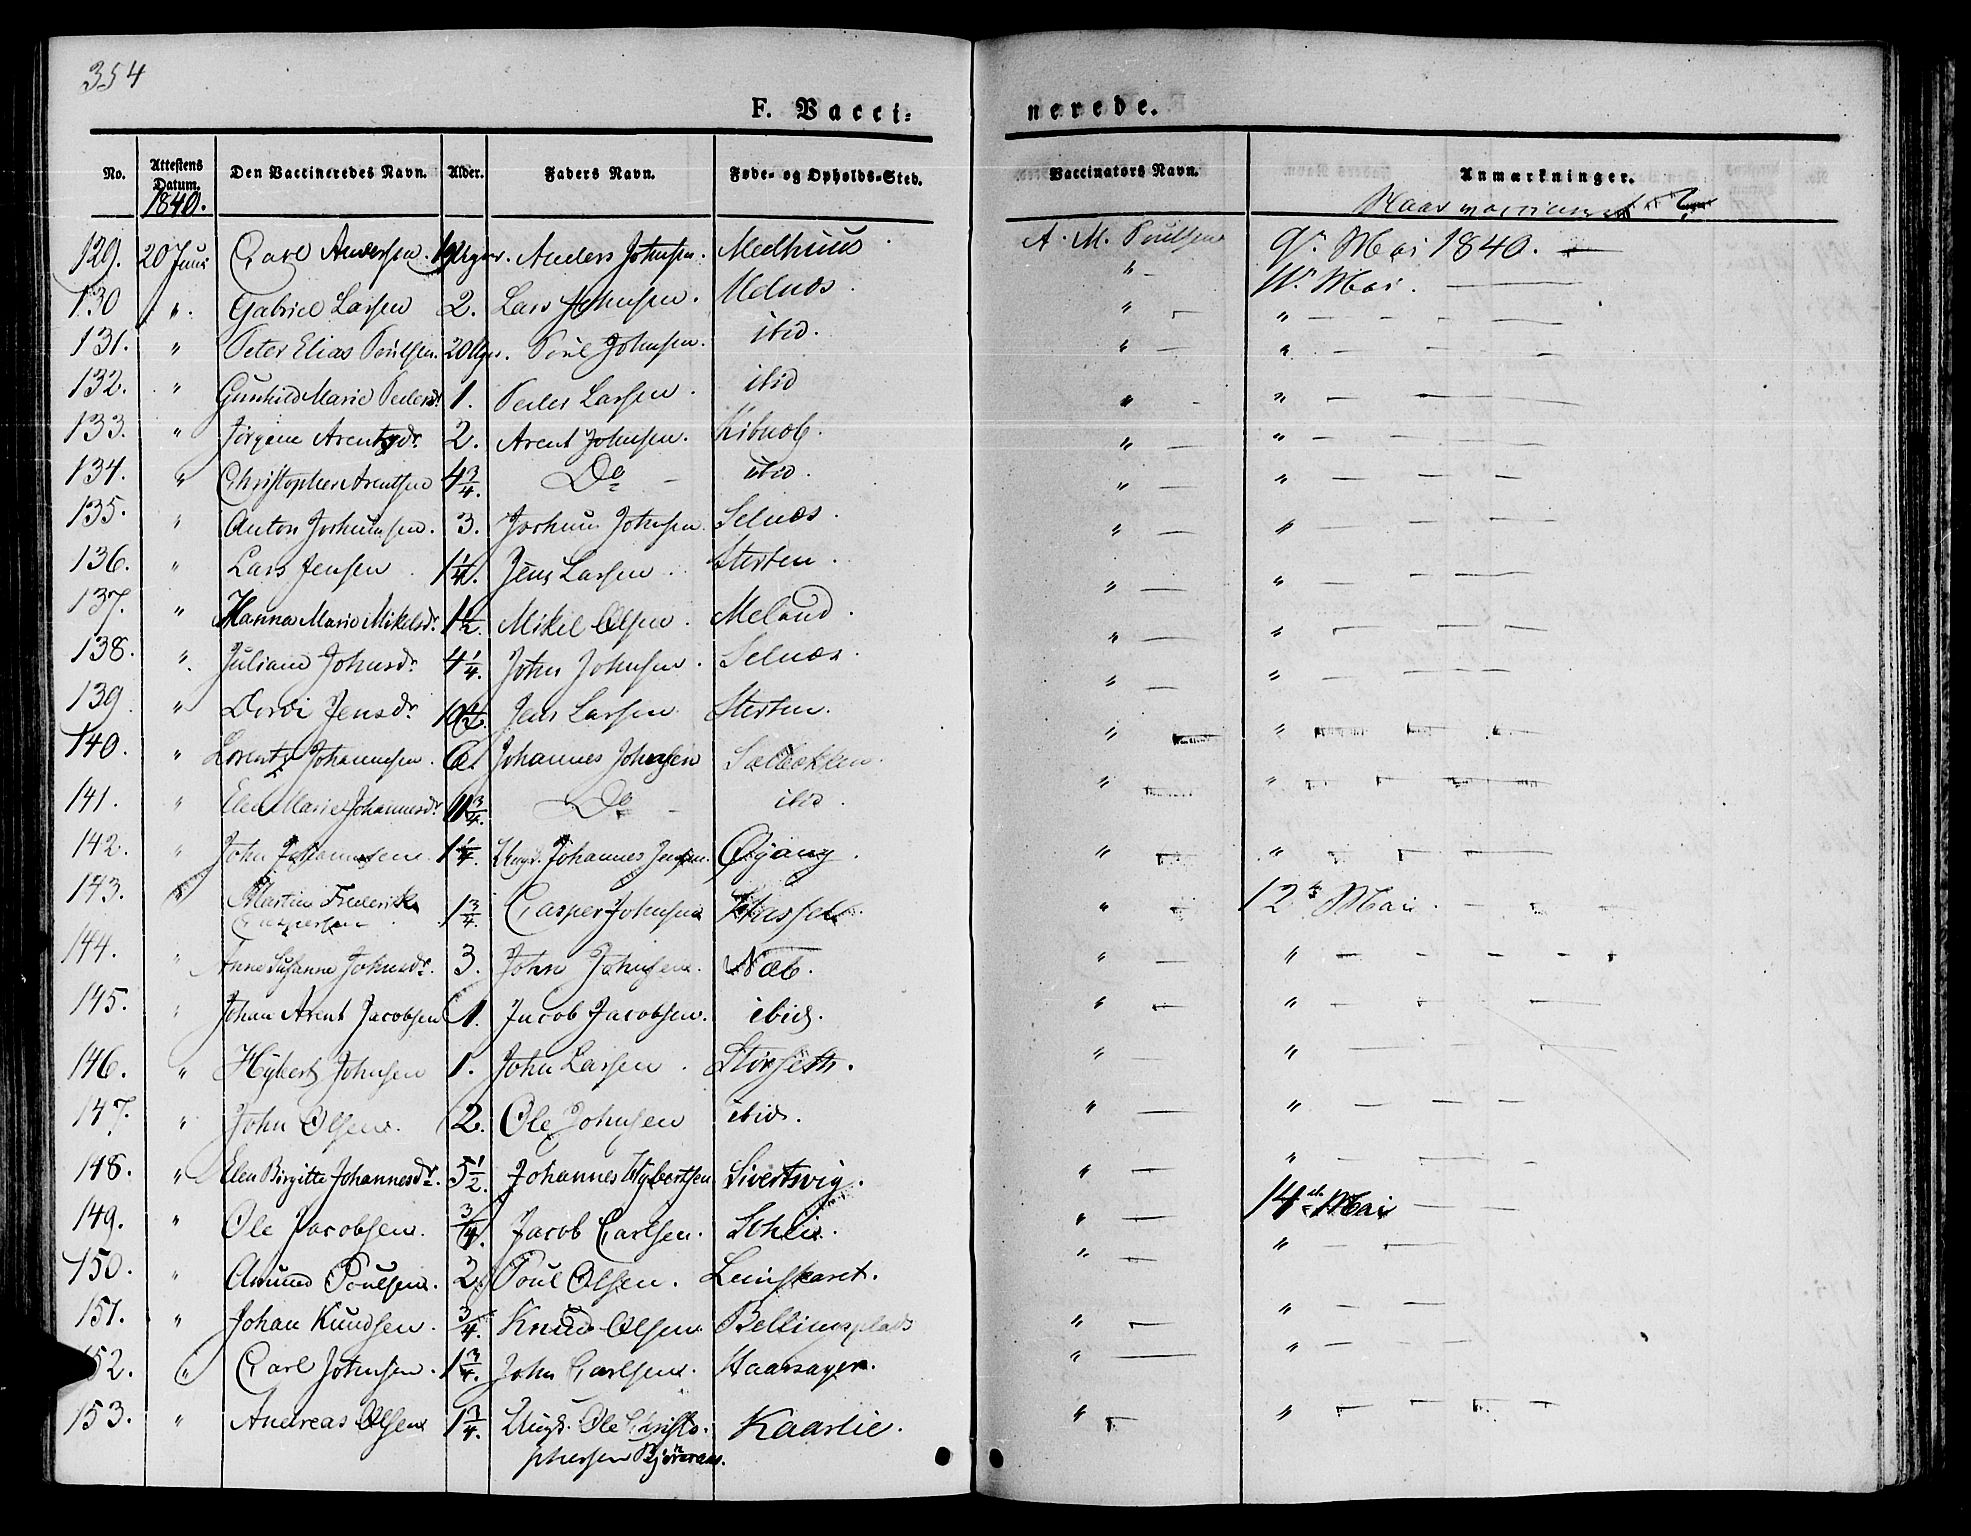 354
F. Vacci- nerede.
No. Attestens Datum. Den Vaccineredes Navn. Alder. Faders Navn. Føde- og Opholds-Sted. Vaccinators Navn. Anmærkninger.
1840. Naar
129. 20 Juni Carl Andersen. Uger. Anders Johnsen. Medhuus A. M. Poulsen 9de Mai 1840. —
130 " Gabriel Larsen 2. Lars Johnsen. Melnæs " — Mai. —
131. " Peter Elias Poulsen. 20 Uger. Poul Johnsen. ibid. " — " — — — —
132. " Gunhild Marie Pedersdr. 1. Peder Larsen. ibid " — " — — —
133. " Jørgine Arentsdr. 2. Arent Johnsen. Kibnæb. " — " — — — —
134. " Christopher Arentsen 4 3/4. Do — ibid. " — " — — — —
135. " Anton Jochumsen. 3. Jochum Johnsen. Selnæs. " — " — — — —
136. " Lars Jensen 1 1/4. Jens Larsen. Sterten. " — " — — —
137. " Hanna Marie Mikelsdr. 1 1/2. Mikel Olsen. Meland. " — " — — — —
138. " Juliane Johnsdr. 4 1/4. John Johnsen. Selnæs. " — " — — — —
139. " Dordi Jensdr. 10 1/2. Jens Larsen. Sterten. " — " — — —
140. " Lorents Johannesen. 6. Johannes Johnsen Sælbækken. " — " — — —
141. " Elen Marie Johannesdr. 11 3/4. Do — ibid. " — " — — — —
142. " John Johannesen. 1 1/4. Ungk. Johannes Jensen. Øyang. " — " — — — —
143. " Martin Frederik 1 3/4. Casper Johnsen Hasselv. " — 12te Mai. — — —
Caspersen
144. " Anne Susanne Johnsdr. 3. John Johnsen. Næb. " — " — — — — —
145. " Johan Arent Jacobsen 1. Jacob Jacobsen. ibid. " — " — — — —
146. " Hybert Johnsen 1. John Larsen. Størseth. " — " — — —
147. " John Olsen. 2. Ole Johnsen ibid. " — " — — —
148. " Elen Birgitte Johannesdr. 5 1/2. Johannes Hybertsen Sivertsvig. " — " — — —
149. " Ole Jacobsen. 3/4. Jacob Carlsen. Schei. " — 14de Mai — —
150. " Amund Poulsen. 2. Poul Olsen. Leinskaret. " — " — —
151. " Johan Knudsen. 3/4. Knud Olsen Bellingsplads " — " — —
152. " Carl Johnsen. 1 3/4. John Carlsen. Haarsager. " — " — —
153. " Andreas Olsen 1 3/4. Ungk. Ole Christo- Kaarlie. " — " — — — —
phersen Bjørnaas.